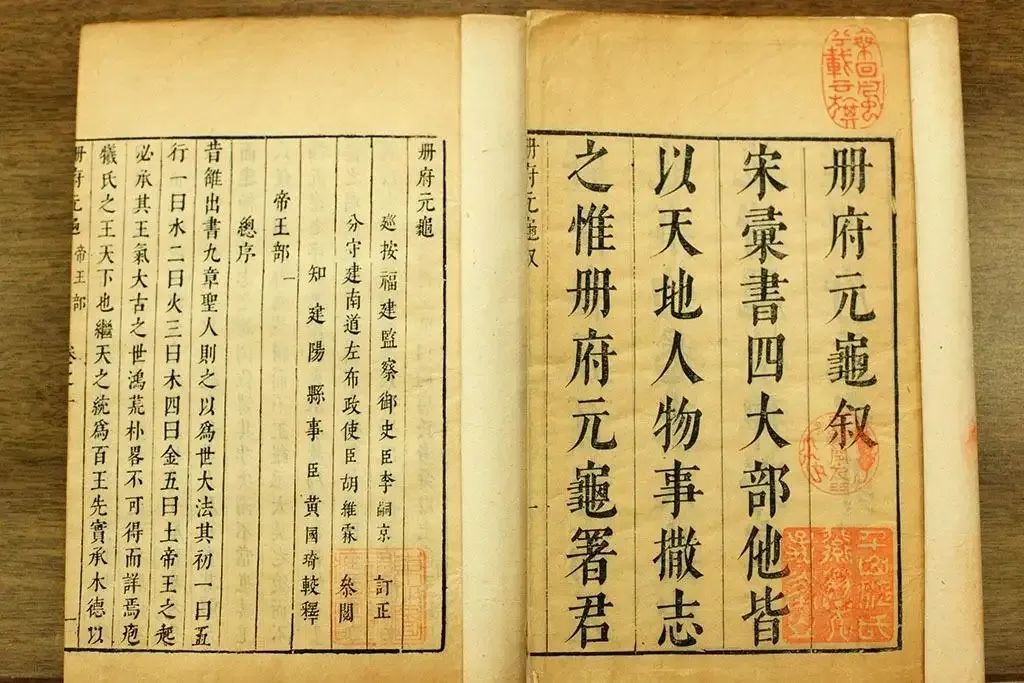 册府元龜叙
宋彙書四大部他皆
以天地人物事撒志
之惟册府元龜署君
册府元龜叙
一
册府元龜
巡按福建監察御史臣李嗣京 訂正
分守建南道左布政使臣胡維霖 參閱
知建陽縣事臣黃國琦較釋
帝王部一
總序
昔雒出書九章聖人則之以為世大法其初一曰五
行一曰水二曰火三曰木四曰金五曰土帝王之起
必承其王氣大古之世鴻荒朴畧不可得而詳焉庖
犧氏之王天下也繼天之統為百王先實承木德以
册府元龜 帝王部